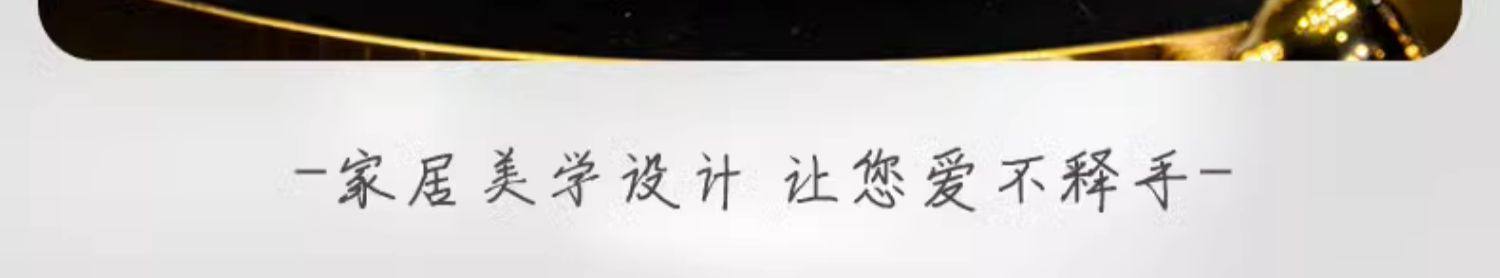 -家居美学设计 让您爱不释手-